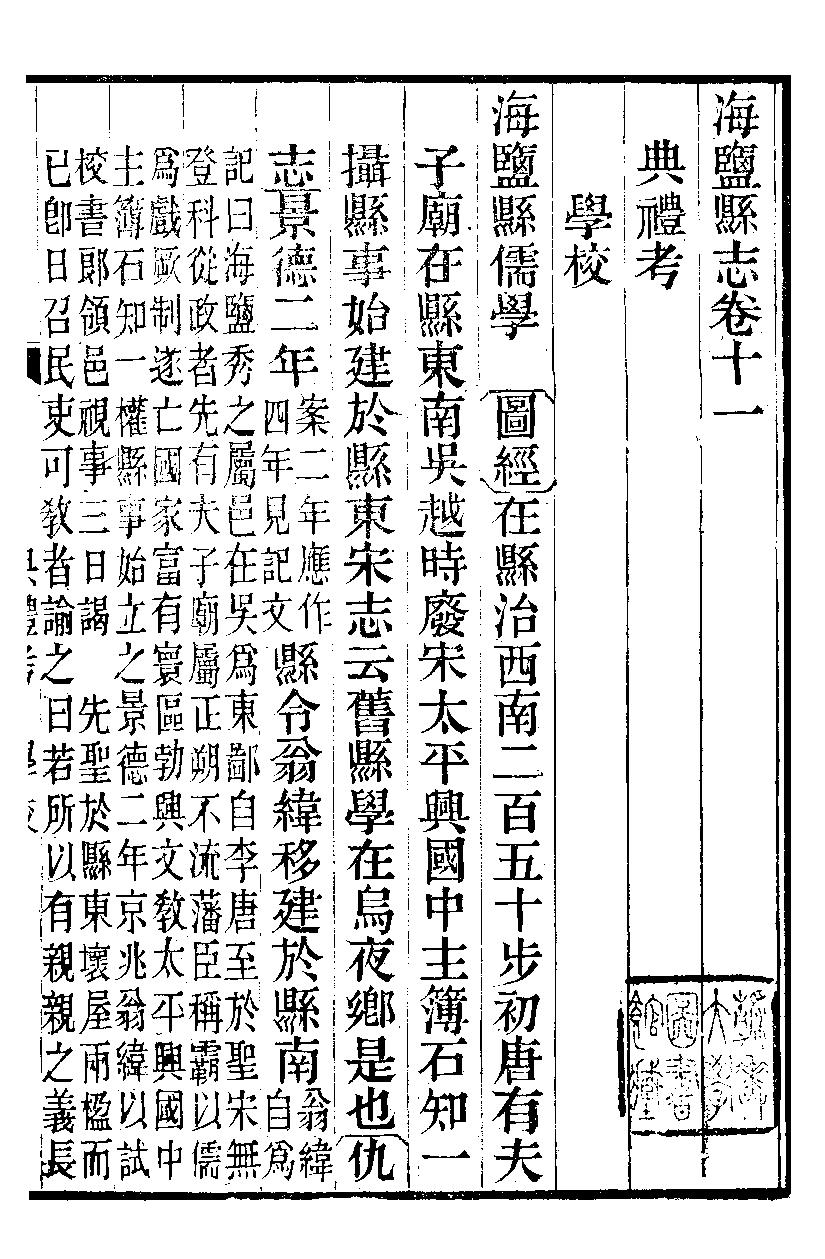 海鹽縣志卷十一
典禮考
學校
海鹽縣儒學 圖經在縣治西南二百五十步初唐有夫
子廟在縣東南吳越時廢宋太平興國中主簿石知一
攝縣事始建於縣東宋志云舊縣學在烏夜鄉是也仇
志景德二年案二年應作四年見記文縣令翁緯移建於縣南翁緯自爲
記曰海鹽秀之屬邑在吳爲東鄙自李唐至於聖宋無
登科從政者先有夫子廟屬正朔不流藩臣稱霸以儒
爲戲厥制遂亡國家富有寰區勃興文敎太平興國中
主簿石知一權縣事始立之景德二年京兆翁緯以試
校書郎領邑視事三日謁 先聖於縣東壞屋兩楹而
已卽日召民吏可敎者諭之曰若所以有親親之義長